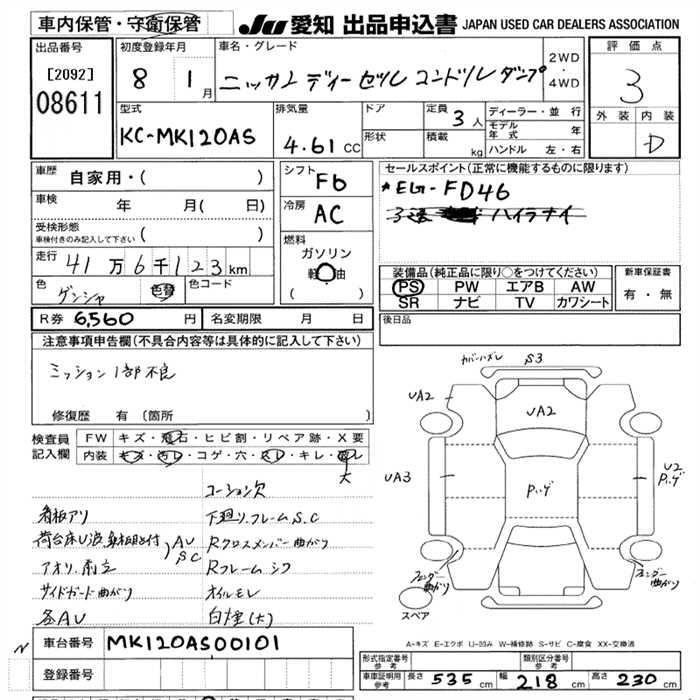 車内保管・守衛保管
JU 愛知 出品申込書 JAPAN USED CAR DEALERS ASSOCIATION
出品番号
[2092]
08611
初度登録年月
8 1月
車名・グレード
ニッサン ディーセツル コンドル ダンプ
2WD
・
4WD
評価点
3
外装 内装
D
型式
KC-MK120AS
排気量
4.61 CC
ドア
形状
定員 3人
積載 kg
ディーラー・並行
モデル年式 年
ハンドル 左・右
車歴 自家用・( )
車検 年 月( 日)
受検形態
車検付きのみ記入して下さい ( )
走行 41万6千123km
色 ゲンシャ 色替 色コード
シフト F6
冷房 AC
燃料
ガソリン
軽油
( )
セールスポイント(正常に機能するものに限ります)
*EG-FD46
ハイラナイ
装備品(純正品に限り○をつけてください)
PS PW エアB AW
SR ナビ TV カワシート
新車保証書
有・無
R券 6,560 円 名変期限 月 日
後日品
注意事項申告欄(不具合内容等は具体的に記入して下さい)
ミッション1部不良
修復歴 有(箇所
検査員
記入欄
FW キズ・飛石・ヒビ割・リペア跡・X要
内装 キズ・汚レ・コゲ・穴・スレ・キレ・
大
コーション欠
看板アリ
下廻リ.フレームS.C
荷台床U
AU
SC
Rクロスメンバー曲がり
アオリ
Rフレーム
サイドガード曲がり
オイルモレ
各AU
白煙(大)
カバーハズレ S3
UA2
UA2
UA3
Pッゲ
U2
Pッゲ
フェンダー曲がり
フェンダー曲がり
スペア
A-キズ E-エクボ U-凹み W-補修跡 S-サビ C-腐食 XX-交換済
N
車台番号 MK120AS00101
登録番号
形式指定番号 参考
類別区分番号 参考
車庫証明用 参考 長さ 535 cm 幅 218 cm 高さ 230 cm